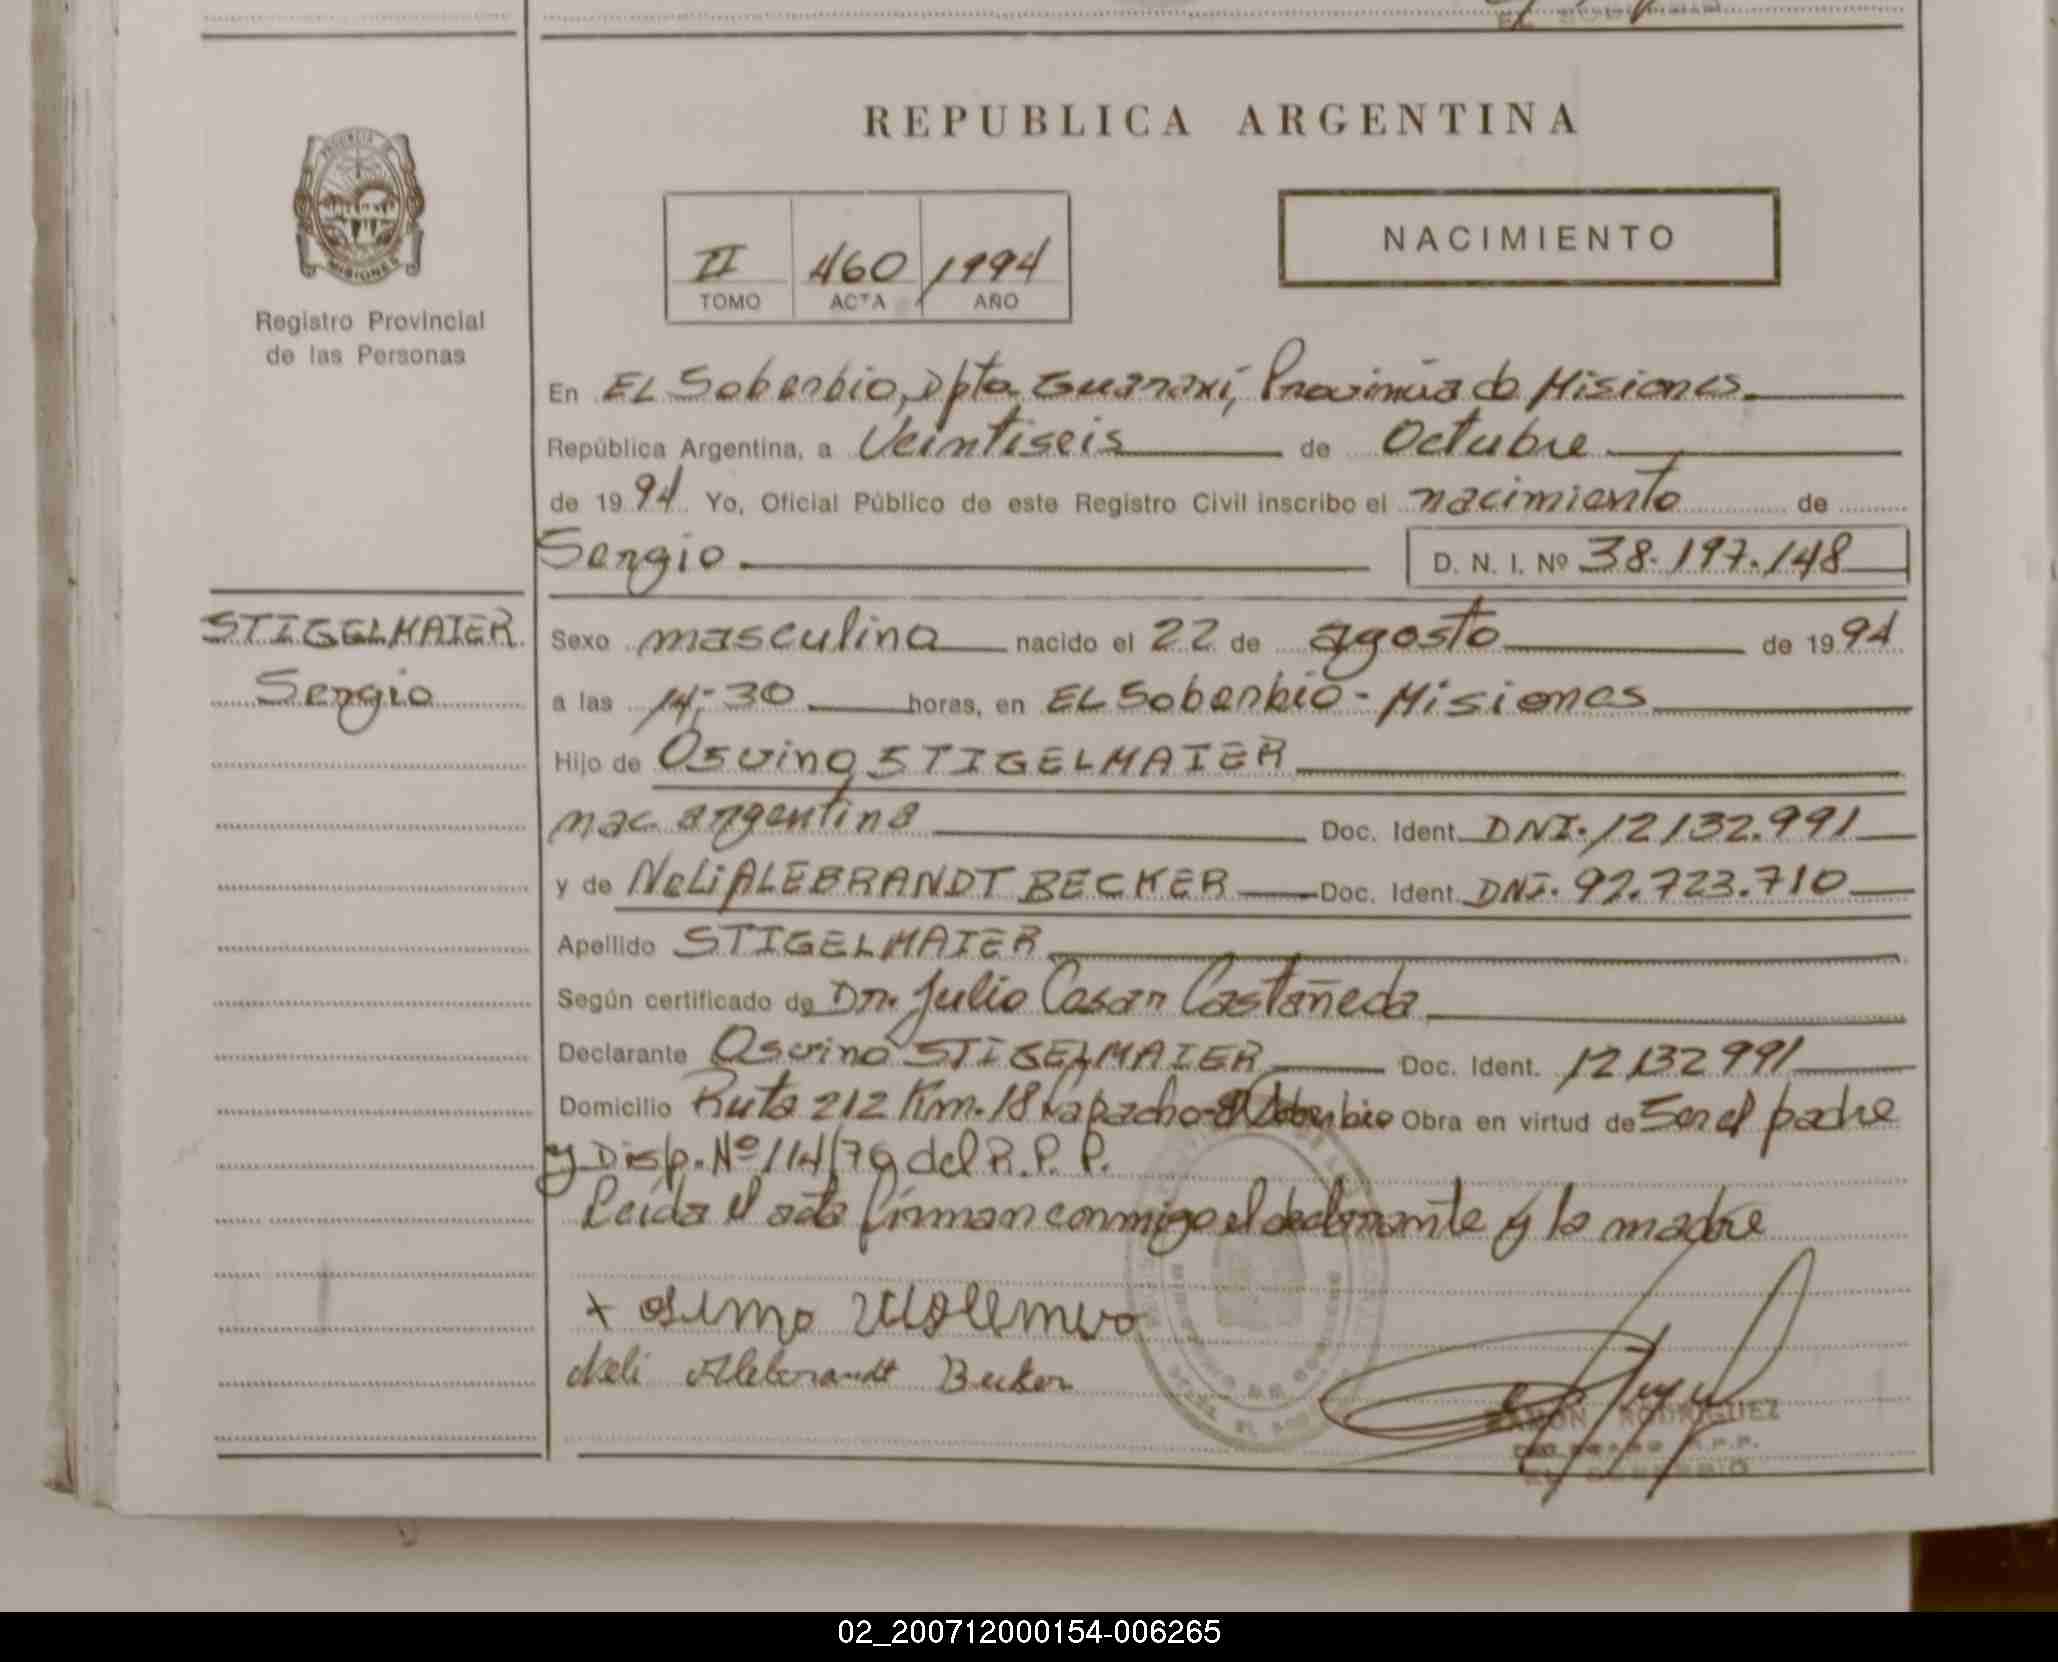 REPUBLICA ARGENTINA
PROVINCIA
MISIONES
Registro Provincial
de las Personas
II 460 1994
TOMO ACTA AÑO
NACIMIENTO
En EL Soberbio, Dpto Guaraní, Provincia de Misiones
República Argentina, a Veintiseis de Octubre
de 1994 Yo, Oficial Público de este Registro Civil inscribo el nacimiento de
Sergio D. N. I. Nº 38.197.148
STIGELMAIER
Sergio
Sexo masculino nacido el 22 de agosto de 1994
a las 14:30 horas, en EL Soberbio - Misiones
Hijo de Osvino STIGELMAIER
nac. argentina Doc. Ident. DNI. 12132.991
y de Neli ALEBRANDT BECKER Doc. Ident. DNI. 92.723.710
Apellido STIGELMAIER
Según certificado de Dr. Julio Cesar Castañeda
Declarante Osvino STIGELMAIER Doc. Ident. 12132991
Domicilio Ruta 212 Km. 18 Lapacho - El Soberbio Obra en virtud de Ser el padre
y Disp. Nº 114/79 del R. P. P.
Leída el acta firman conmigo el declarante y la madre
Neli Alebrandt Becker
RAMON RODRIGUEZ
R.P.P.
EL SOBERBIO
02_200712000154-006265